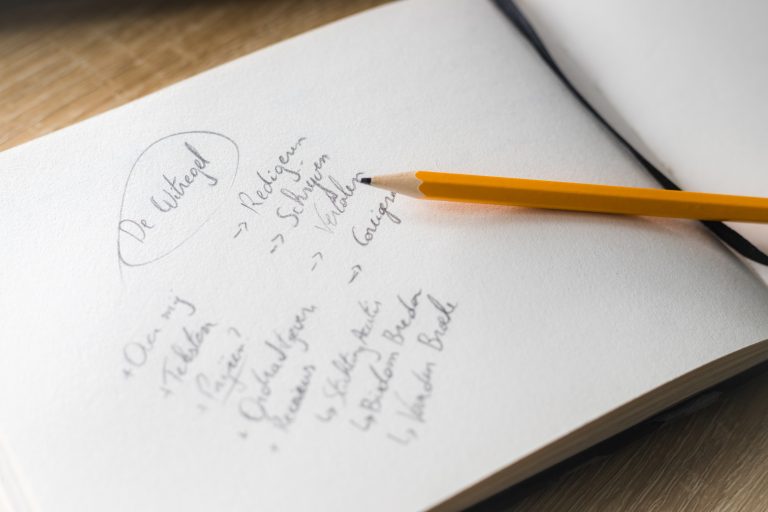 De Witregel
-> Redigeren
-> Schrijven
-> Vertalen
-> Corrigeren
+ Over mij
+ Teksten
+ Prijzen?
+ Opdrachtgevers
+ Recensies
↳ Stichting
↳ Bisdom Breda
↳ Van den Broele